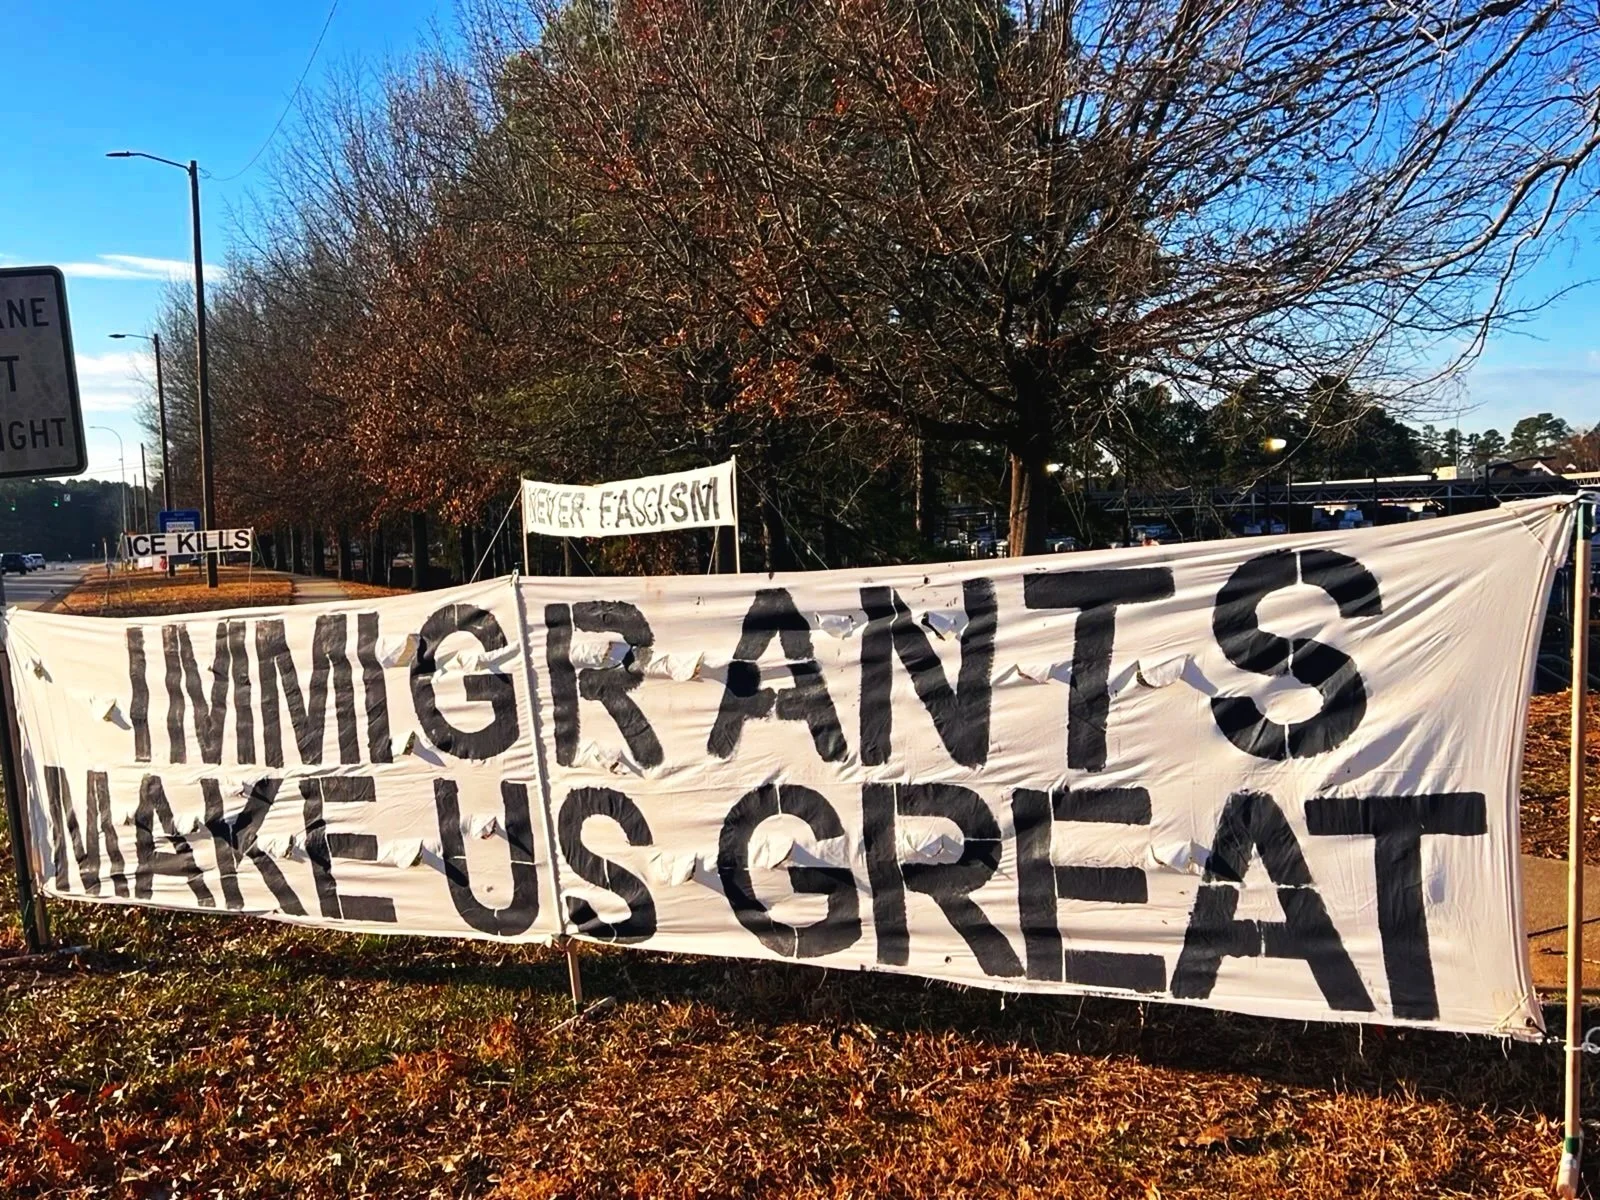 ANE
T
IGHT
ICE KILLS
NEVER FASCISM
IMMIGRANTS
MAKE US GREAT